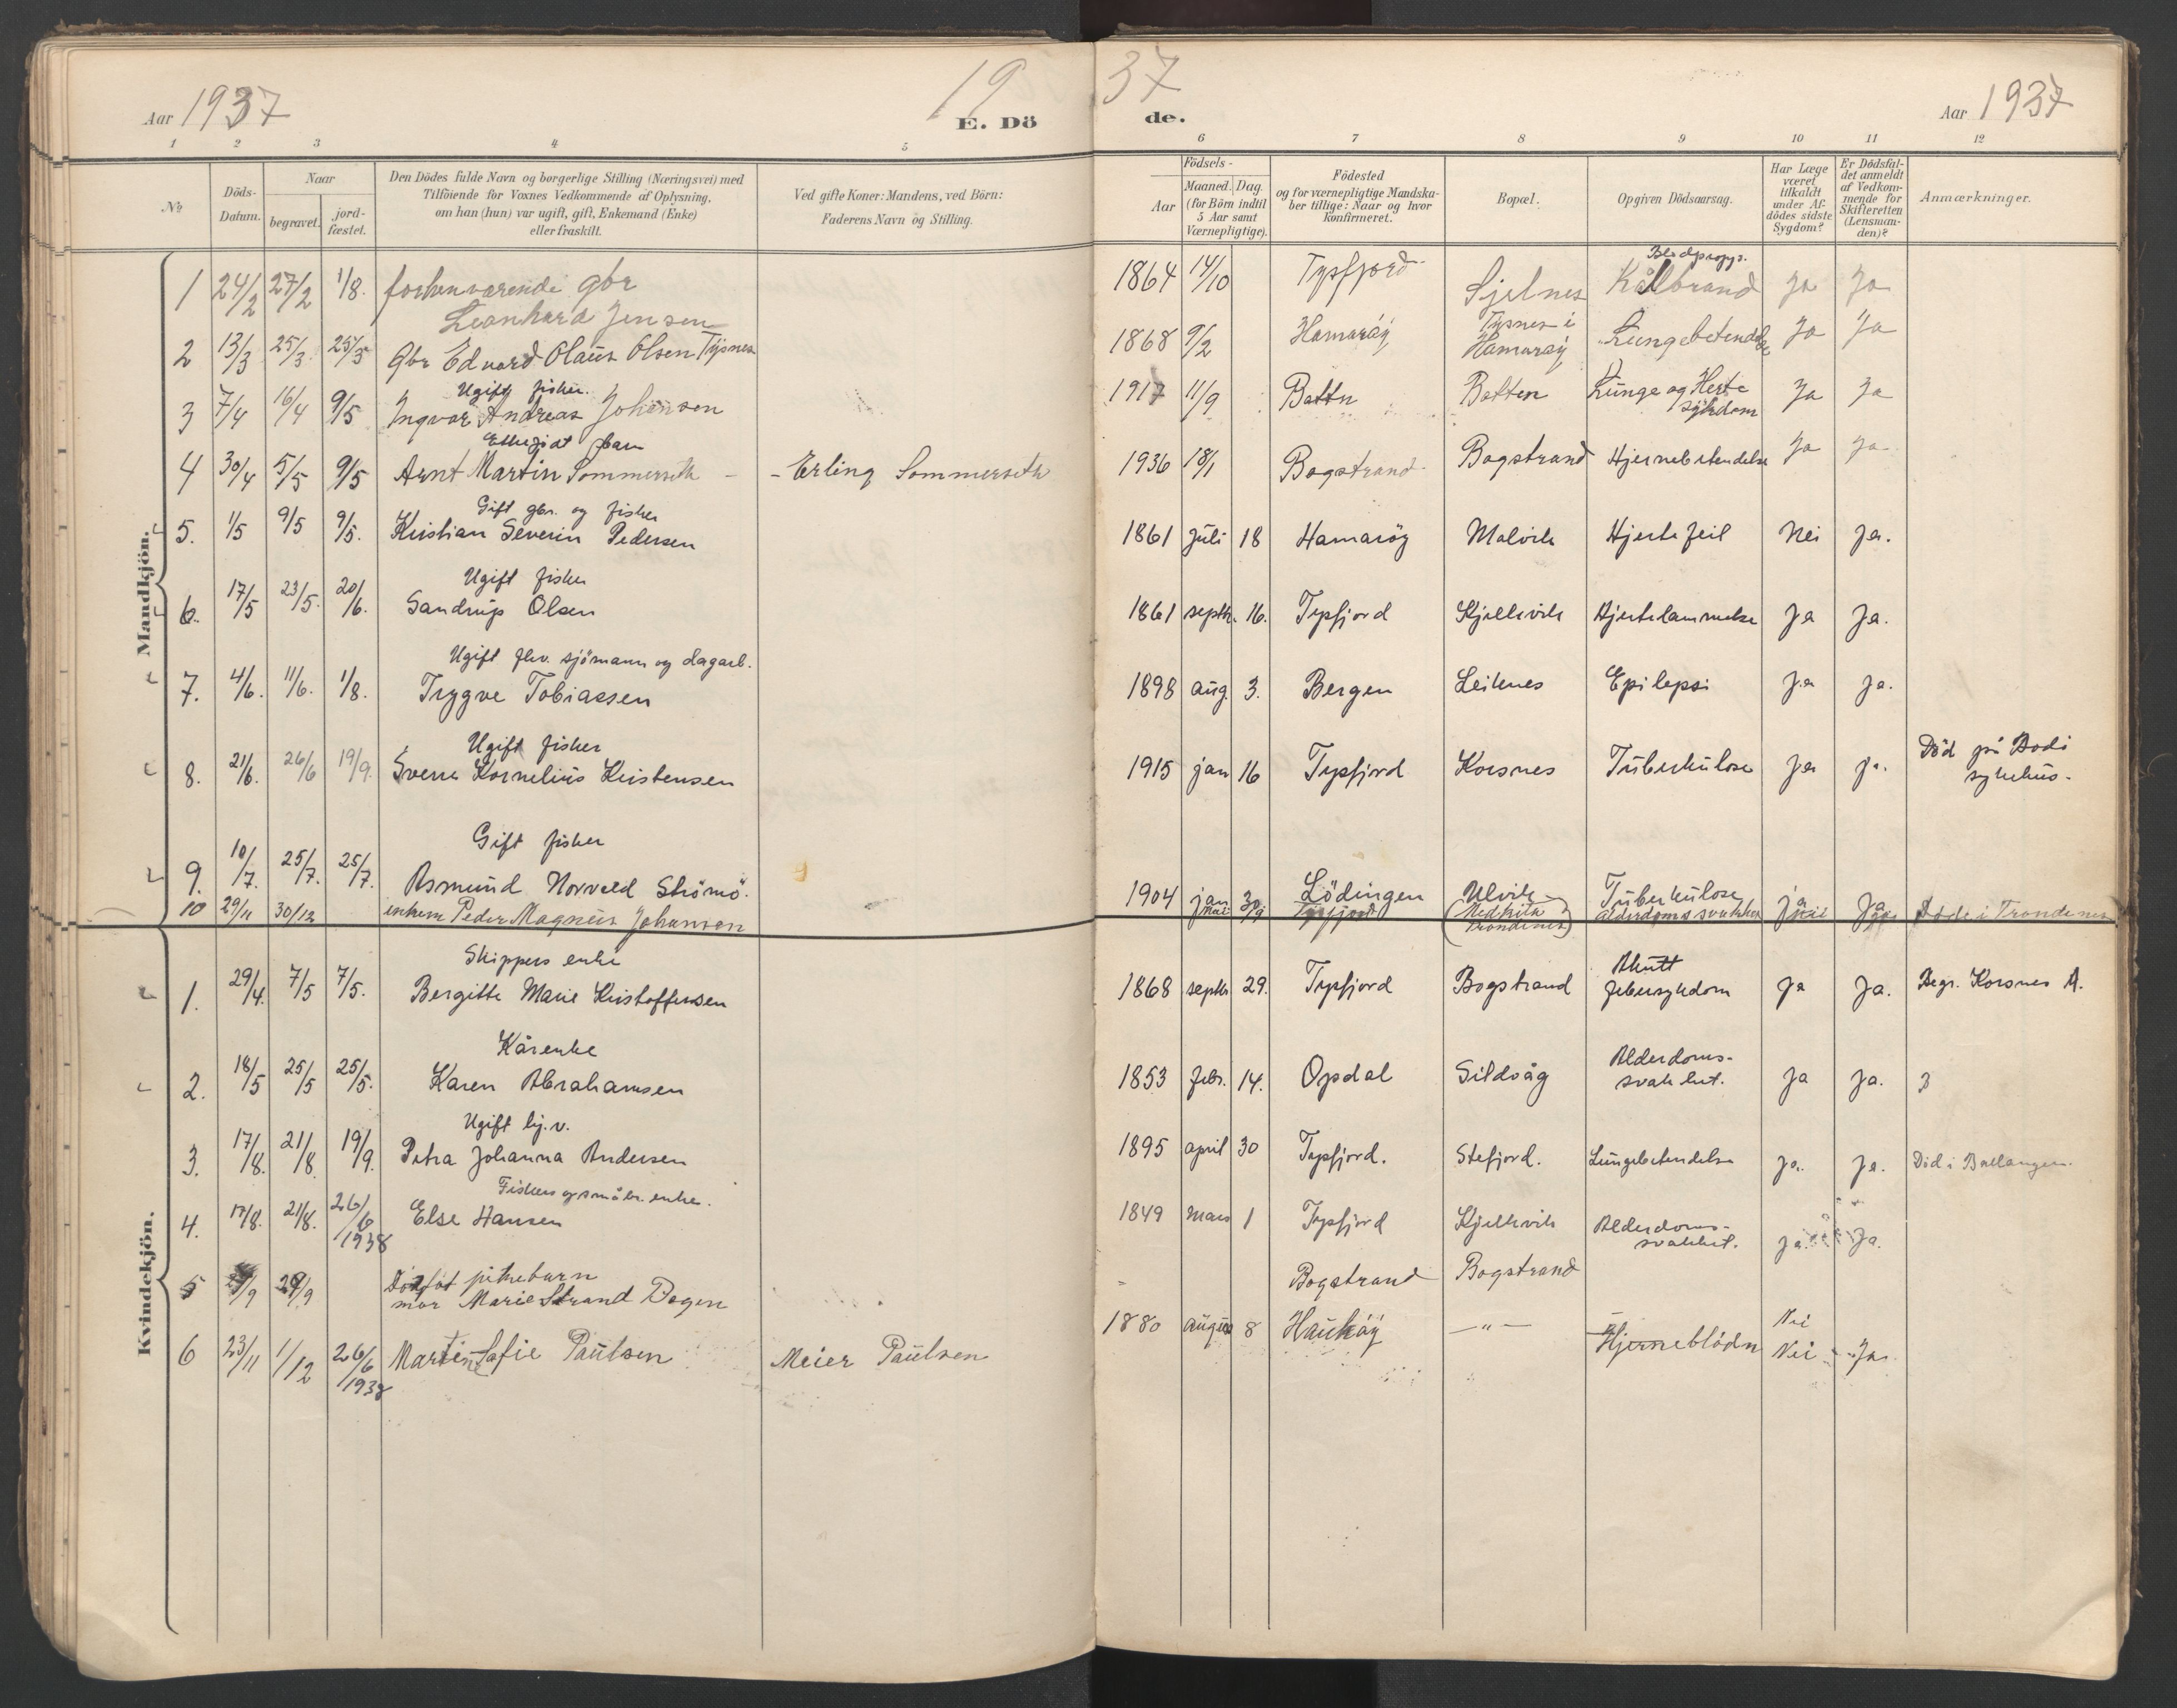 Aar 1937
19 37
E. Dö de.
Aar 1937
1 2 3 4 5 6 7 8 9 10 11 12
№
Döds-Datum.
Naar
begravet.
jord-fæstet.
Den Dödes fulde Navn og borgerlige Stilling (Næringsvei) med
Tilföiende for Voxnes Vedkommende af Oplysning,
om han (hun) var ugift, gift, Enkemand (Enke)
eller fraskilt.
Ved gifte Koner: Mandens, ved Börn:
Faderens Navn og Stilling.
Födsels-
Aar
Maaned. Dag.
(for Börn indtil
5 Aar samt
Værnepligtige).
Födested
og for værnepligtige Mandska-
ber tillige: Naar og hvor
konfirmeret.
Bopæl.
Opgiven Dödsaarsag.
Har Læge
været
tilkaldt
under Af-
dödes sidste
Sygdom?
Er Dödsfal-
det anmeldt
af Vedkom-
mende for
Skifteretten
(Lensman-
den)?
Anmærkninger.
Mandkjön.
1 24/2 27/2 1/8. forhenværende gbr
Leonhard Jensen
1864 14/10 Tysfjord Sjelnes Kålbrand Ja Ja
2 13/3 25/3. 25/3 Gbr Edvard Olaus Olsen Tysnes
1868 9/2 Hamaröy Tysnes i Hamaröy Lungebetendelse Ja Ja
Ugift fisker
3 7/4 16/4 9/5 Ingvar Andreas Johansen
1917 11/9 Botten Lunge og Herte sykdom Ja Ja
barn
4 30/4 5/5 9/5 Arnt Martin Sommerseth - - Erling Sommerseth
1936 18/1 Bogstrand Bogstrand Hjernebetendelse Ja Ja
Gift gbr. og fisker
5. 1/5 9/5 9/5. Kristian Severin Pedersen
1861 juli 18 Hamaröy Malvik Hjertefeil Nei Ja.
Ugift fisker
6. 17/5 23/5. 20/6. Sandrup Olsen
1861 septbr. 16. Tysfjord Kjelkvik Hjertelammelse Ja Ja.
Ugift fhv. sjömann og dagarb.
7. 4/6. 11/6. 1/8. Trygve Tobiassen
1898 aug. 3. Bergen Leiknes Epilepsi Ja Ja.
Ugift fisker
8. 21/6. 26/6 19/9. Sverre Kornelius Kristensen
1915 jan 16 Tysfjord Korsnes Tuberkulose Ja ja. Död på Bodö
sykehus.
Gift fisker
9. 10/7. 25/7. 25/7. Asmund Norvald Strömö.
1904 jan 30 Lödingen Ulvik Tuberkulose ja Ja
10 29/11 30/12 enkem Peder Magnus Johansen
mai Tysfjord Alderdomssvakhet nei Döde i Trondenes
Kvindekjön.
Skippers enke
1. 29/4. 7/5 7/5. Bergitte Marie Kristoffersen
1868 septbr 29. Tysfjord Bogstrand Akutt febersykdom Ja Ja. Begr. Korsnes A.
Kårenke
2. 18/5 25/5 25/5. Karen Abrahamsen
1853 febr. 14. Opdal Sildvåg Alderdoms-
svakhet. Ja Ja.
Ugift hj.v.
3. 17/8. 21/8 19/9. Petra Johanna Andersen
1895 april 30 Tysfjord. Stefjord. Lungebetendelse Ja. Ja. Död i Ballangen.
Fiskers og småbr. enke.
4. 17/8. 21/8. 26/6 1938 Else Hansen
1849 Mars 1 Tysfjord Kjelkvik Alderdoms-
svakhet. Ja. Ja.
5 29/9 Dödföt pikebarn
mor Marie Strand Bogen
Bogstrand Bogstrand
6 23/11 1/12 26/6 1938 Martine Sofie Paulsen Meier Paulsen
1880 august 8 Hauköy —"— Hjerneblödn Nei
Nei Ja.